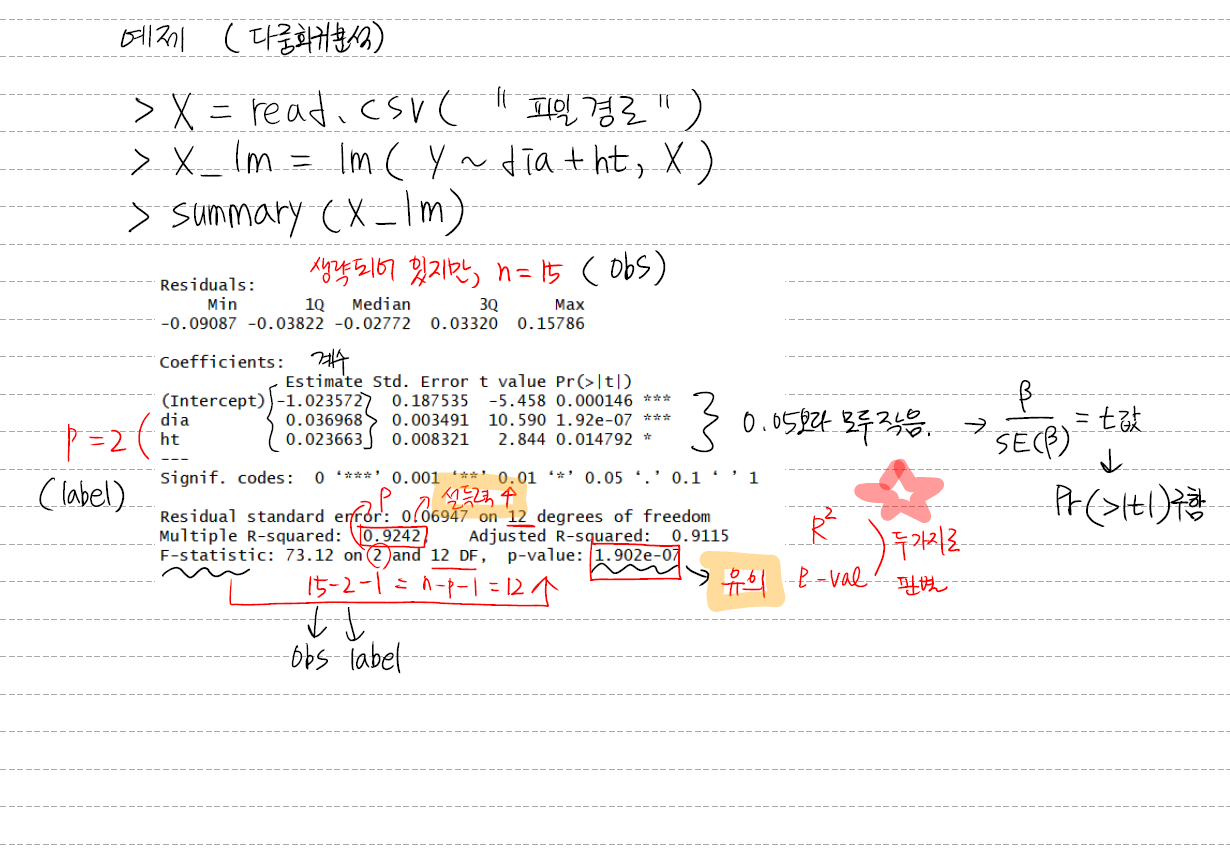 예제 (다중회귀분석)
> X = read.csv( "파일경로")
> X_lm = lm( Y ~ dia + ht, X )
> summary (X_lm)
생략되어 있지만, n = 15 (obs)
Residuals:
Min 1Q Median 3Q Max
-0.09087 -0.03822 -0.02772 0.03320 0.15786
Coefficients: 계수
Estimate Std. Error t value Pr(>|t|)
(Intercept) -1.023572 0.187535 -5.458 0.000146 ***
dia 0.036968 0.003491 10.590 1.92e-07 ***
ht 0.023663 0.008321 2.844 0.014792 *
---
p = 2
(label)
0.05보다 모두 작음. → β / SE(β) = t값
↓
Pr(>|t|) 구함
Signif. codes: 0 ‘***’ 0.001 ‘**’ 0.01 ‘*’ 0.05 ‘.’ 0.1 ‘ ’ 1
P 설득력 ↑
Residual standard error: 0.06947 on 12 degrees of freedom
Multiple R-squared: 0.9242, Adjusted R-squared: 0.9115
F-statistic: 73.12 on 2 and 12 DF, p-value: 1.902e-07
→ 유의
R²
P-val
두가지로
판별
15-2-1 = n-p-1 = 12
↓ ↓
obs label